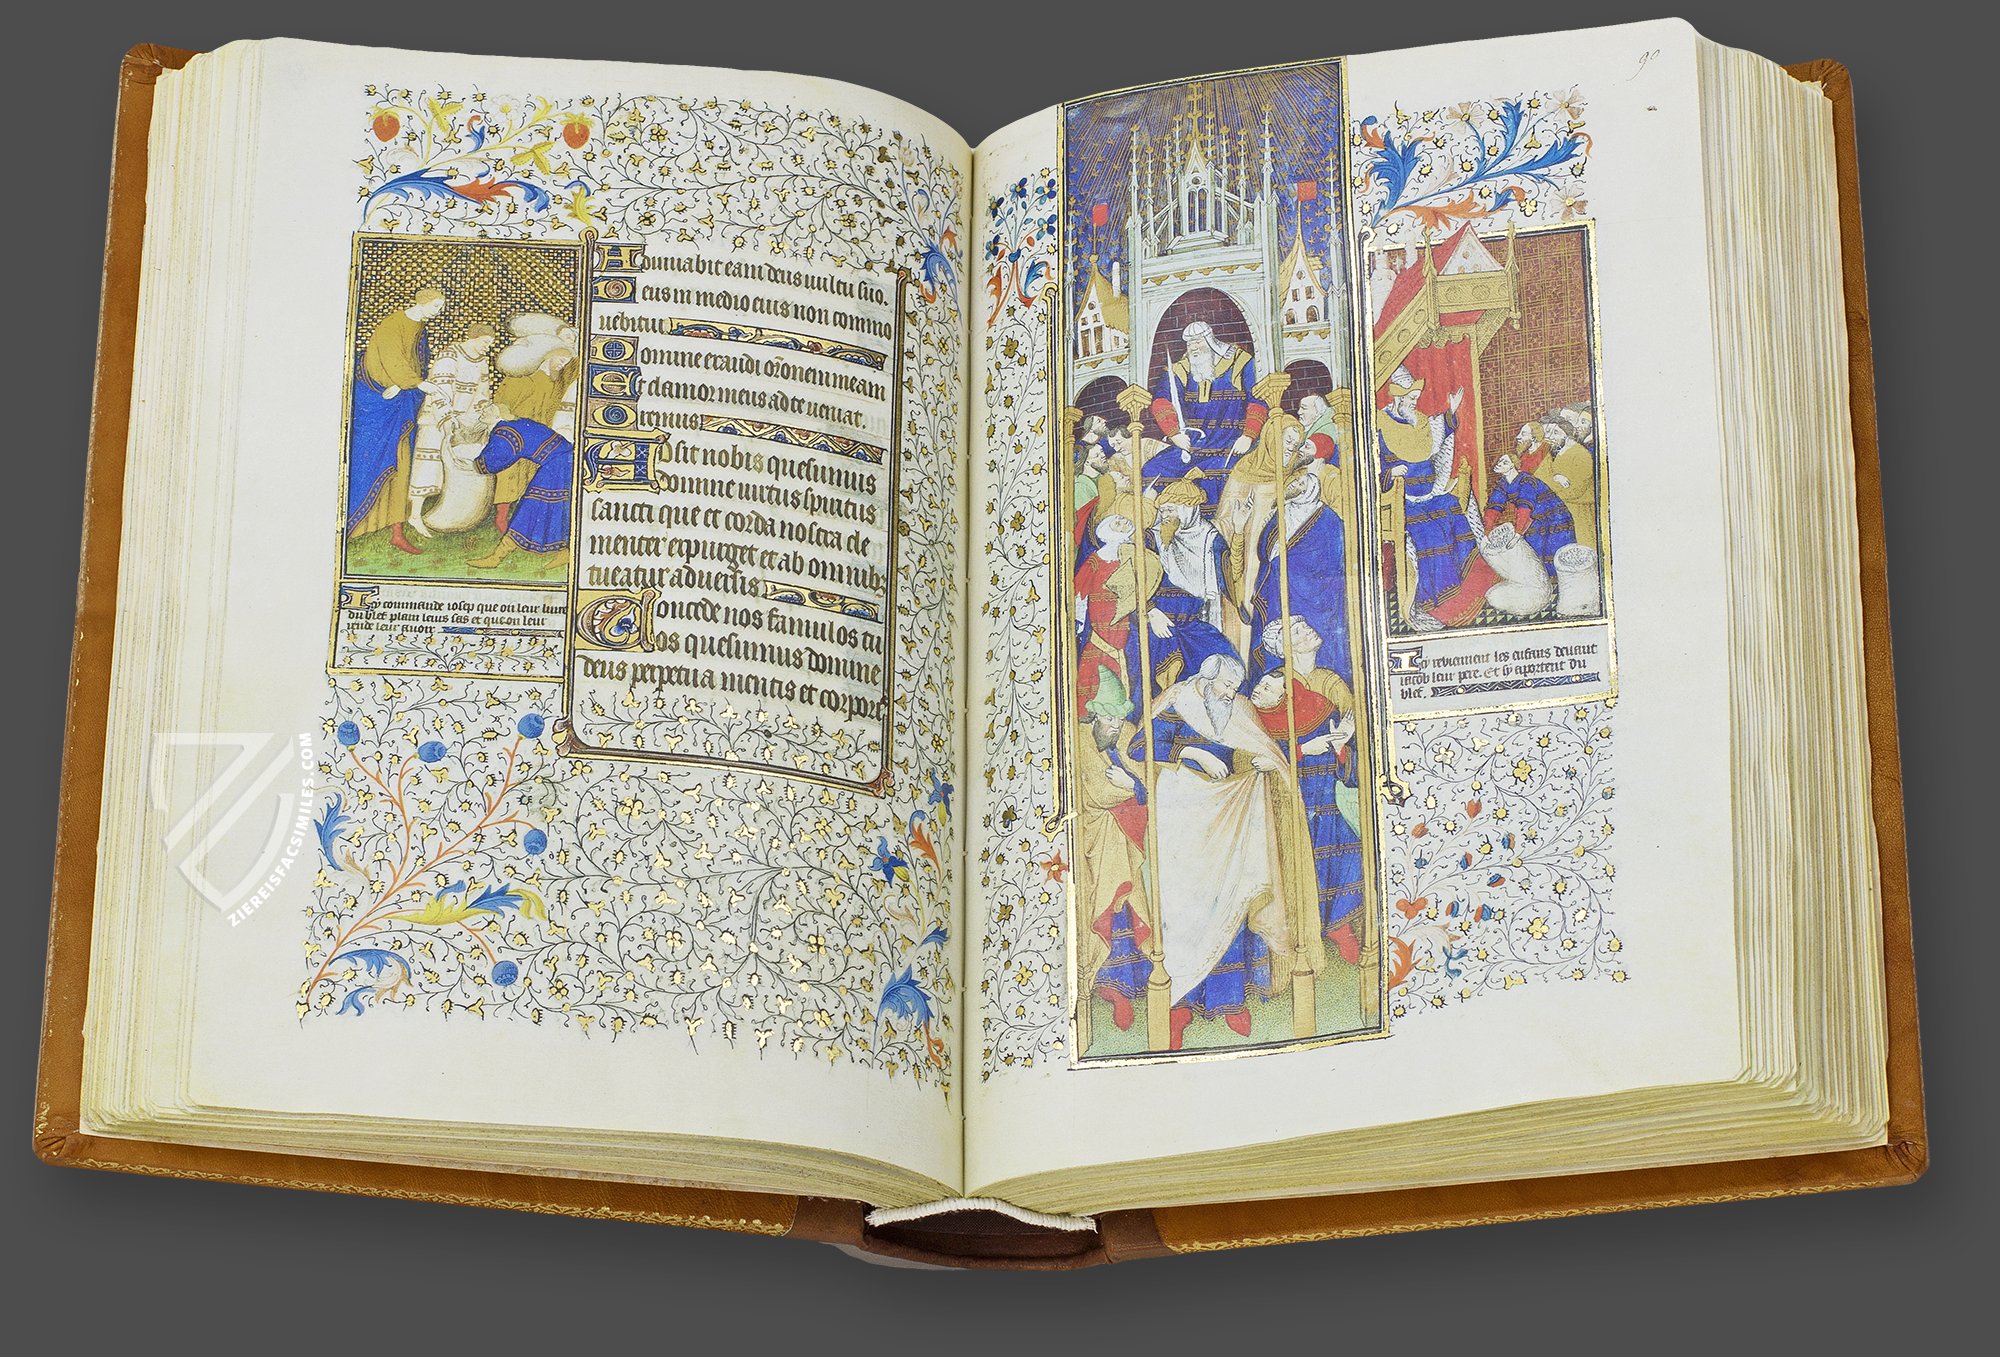 Adiuvabit eam deus vultu suo.
Deus in medio eius non commo
vebitur
Domine exaudi orõnem meam
Et clamor meus ad te veniat.
Oremus
Adsit nobis quesumus
domine virtus spiritus
sancti que et corda nostra cle
menter expurget et ab omnibz
tueatur adversis
Concede nos famulos tu
os quesumus domine
deus perpetua mentis et corporis
Cy commande iosep que on leur livre
du blef plain leurs sas et que on leur
rende leur avoir
90
Cy revienment les enfans devant
iacob leur pere. Et sy aportent du
blef.
ZIEREISFACSIMILES.COM